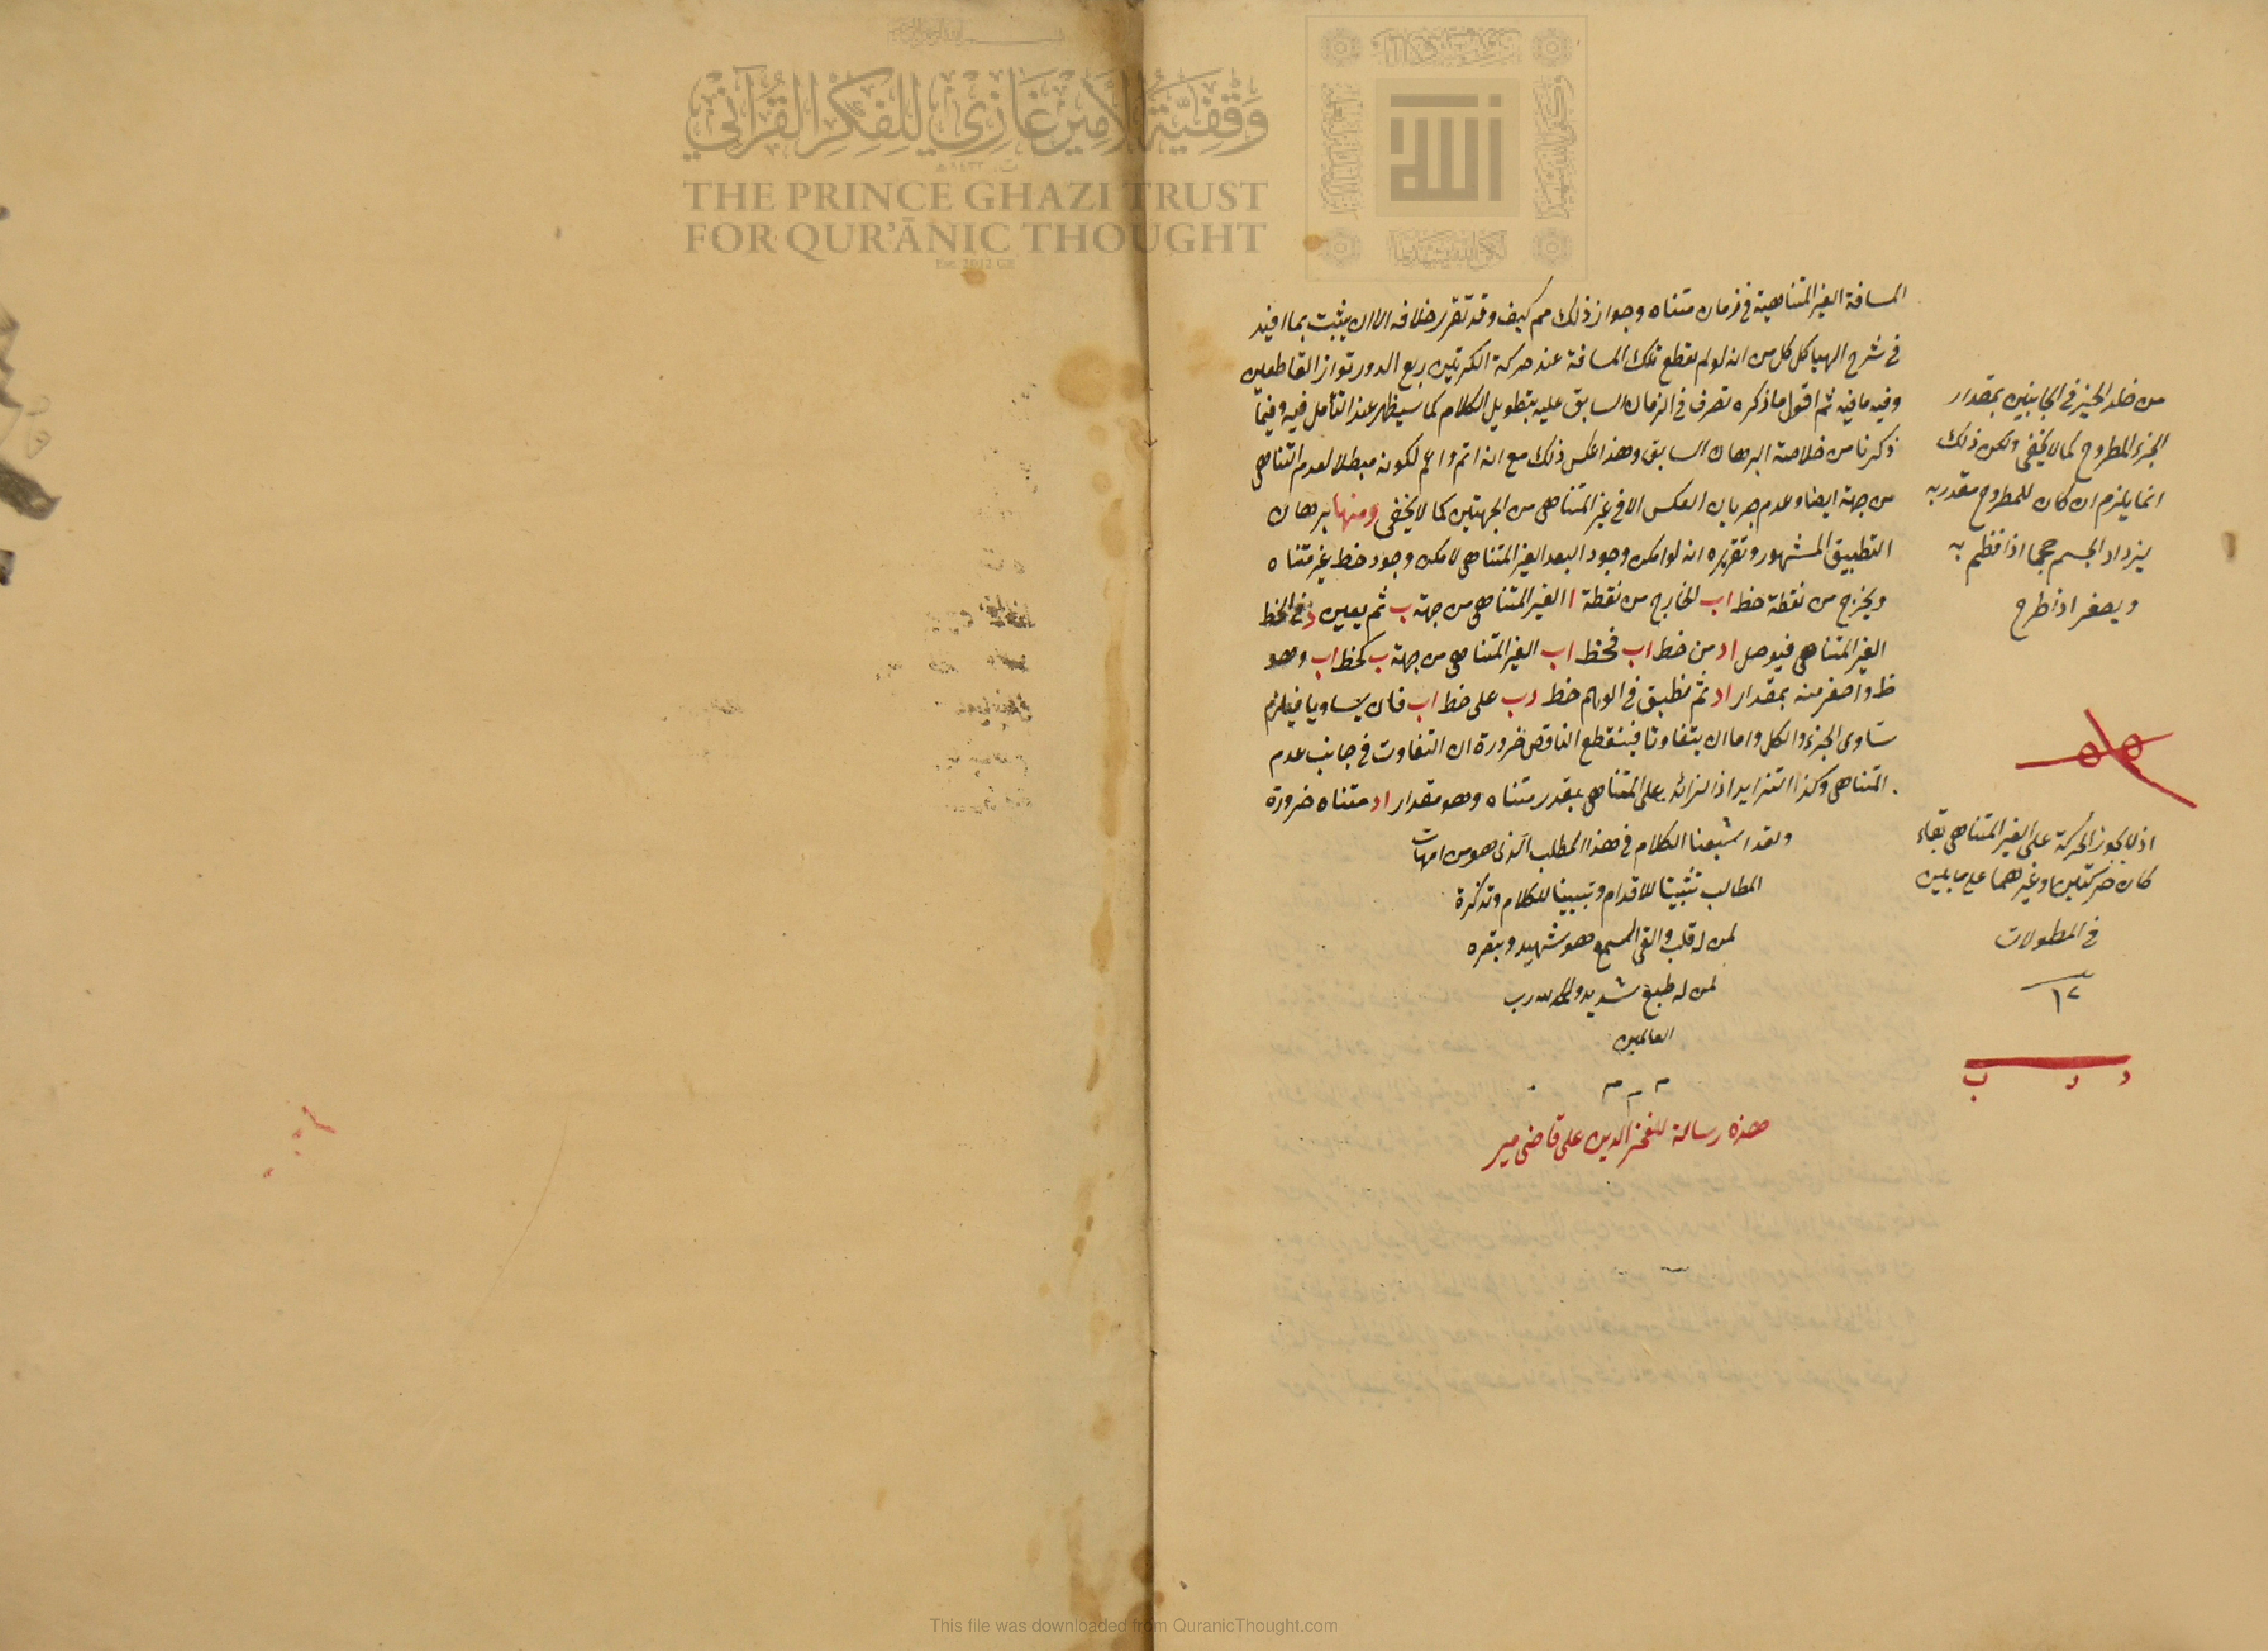 وقفية الأمير غازي للفكر القرآني
THE PRINCE GHAZI TRUST
FOR QUR'ĀNIC THOUGHT
Est. 2012 CE
المسافة الغير المتناهية في زمان متناه وجواز ذلك مم كيف وقد تقرر خلافه الا ان يثبت بما افيد
في شرح الهياكل من انه لو لم يقطع تلك المسافة عند حركة الكرتين ربع الدور تواز القاطعين
وفيه ما فيه ثم اقول ما ذكره تصرف في الزمان السابق عليه بتطويل الكلام كما سيظهر عند التأمل فيه وفيما
ذكرنا من خلاصة البرهان السابق وهذا عكس ذلك مع انه اتم واعم لكونه مبطلا لعدم التناهي
من جهة ايضا وعدم جريان العكس الا في غير المتناهي من الجهتين كما لا يخفى ومنها برهان
التطبيق المشهور وتقريره انه لو امكن وجود البعد الغير المتناهي لامكن وجود خط غير متناه
ويخرج من نقطة خط اب الخارج من نقطة ا الغير المتناهي من جهة ب ثم يعين د في الخط
الغير المتناهي فيوصل اد من خط اب فخط اب الغير المتناهي من جهة ب كخط اب وهو
واصغر منه بمقدار اد ثم نطبق في الوهم خط دب على خط اب فان يتساويا فيلزم
تساوى الجزء والكل واما ان يتفاوتا فينقطع الناقص ضرورة ان التفاوت في جانب عدم
المتناهي وكذا التزايد اذ الزائد على المتناهي بقدر متناه وهو مقدار اد متناه ضرورة
ولقد اشبعنا الكلام في هذا المطلب الذي هو من امهات
المطالب تثبيتا للاقدام وتبيينا للكلام وتذكرة
لمن له قلب والقى السمع وهو شهيد وتبصرة
لمن له طبع سديد والحمد لله رب
العالمين
هذه رسالة للفخر الدين على قاضى مير
الجزء المطروح كما لا يخفى ولكن ذلك
انما يلزم ان كان للمطروح مقدر به
يزداد الجسم حجما اذا انظم به
ويصغر اذا طرح
اذ لا يجوز الحركة على الغير المتناهي
في المطولات
١٢
د د ب
This file was downloaded from QuranicThought.com